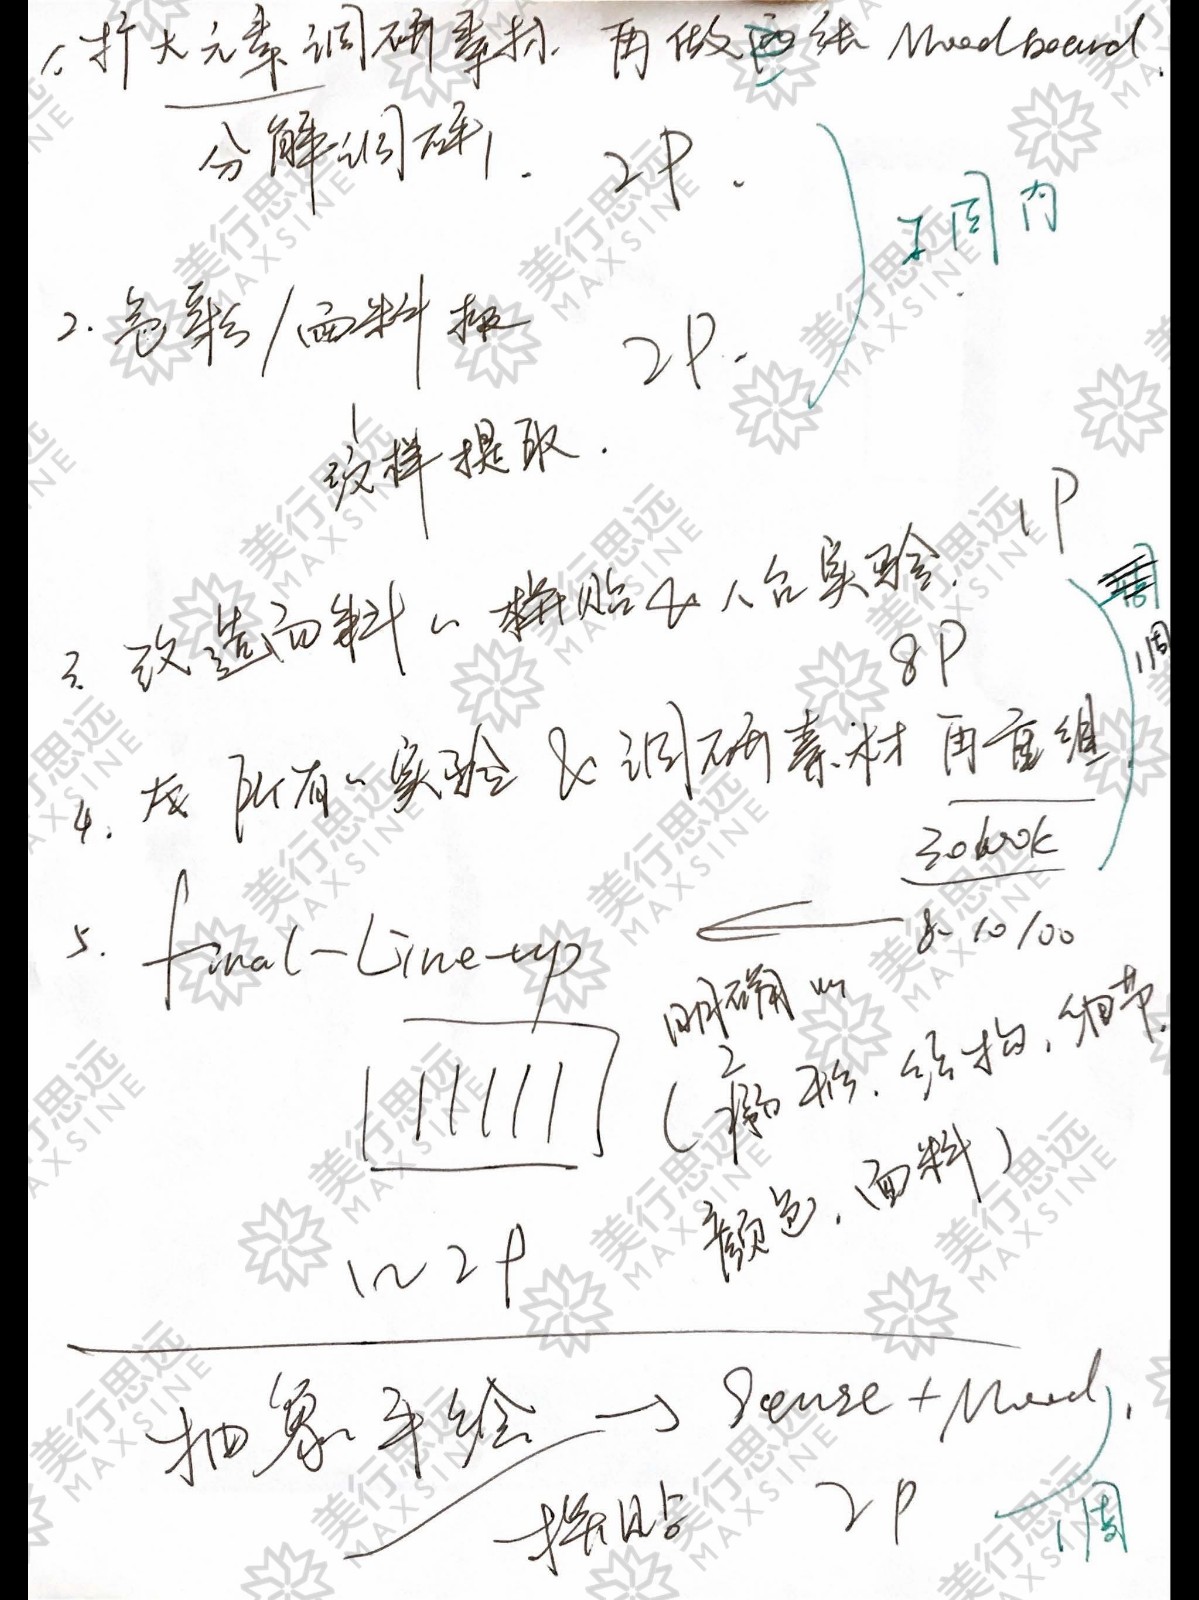 1. 扩大元素调研素材. 再做 Moodboard.
分解调研. 2P.
周内
2. 色彩/面料板 2P.
纹样提取.
1P
3. 改造面料、拼贴 & 人台实验.
1周
8P
4. 所有、实验 & 调研素材 再重组
look
5. final-Line-up
8-10/00
明确
(廓形. 结构. 细节.
颜色. 面料)
1~2P
抽象手绘 → Sense + Mood.
拼贴 2P
1周
美行思远
MAXSINE